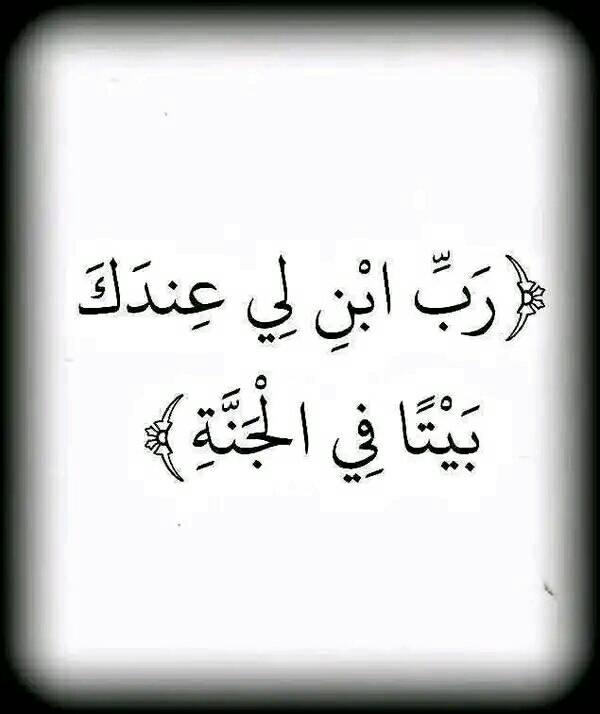 ﴿رَبِّ ابْنِ لِي عِندَكَ
بَيْتًا فِي الْجَنَّةِ﴾